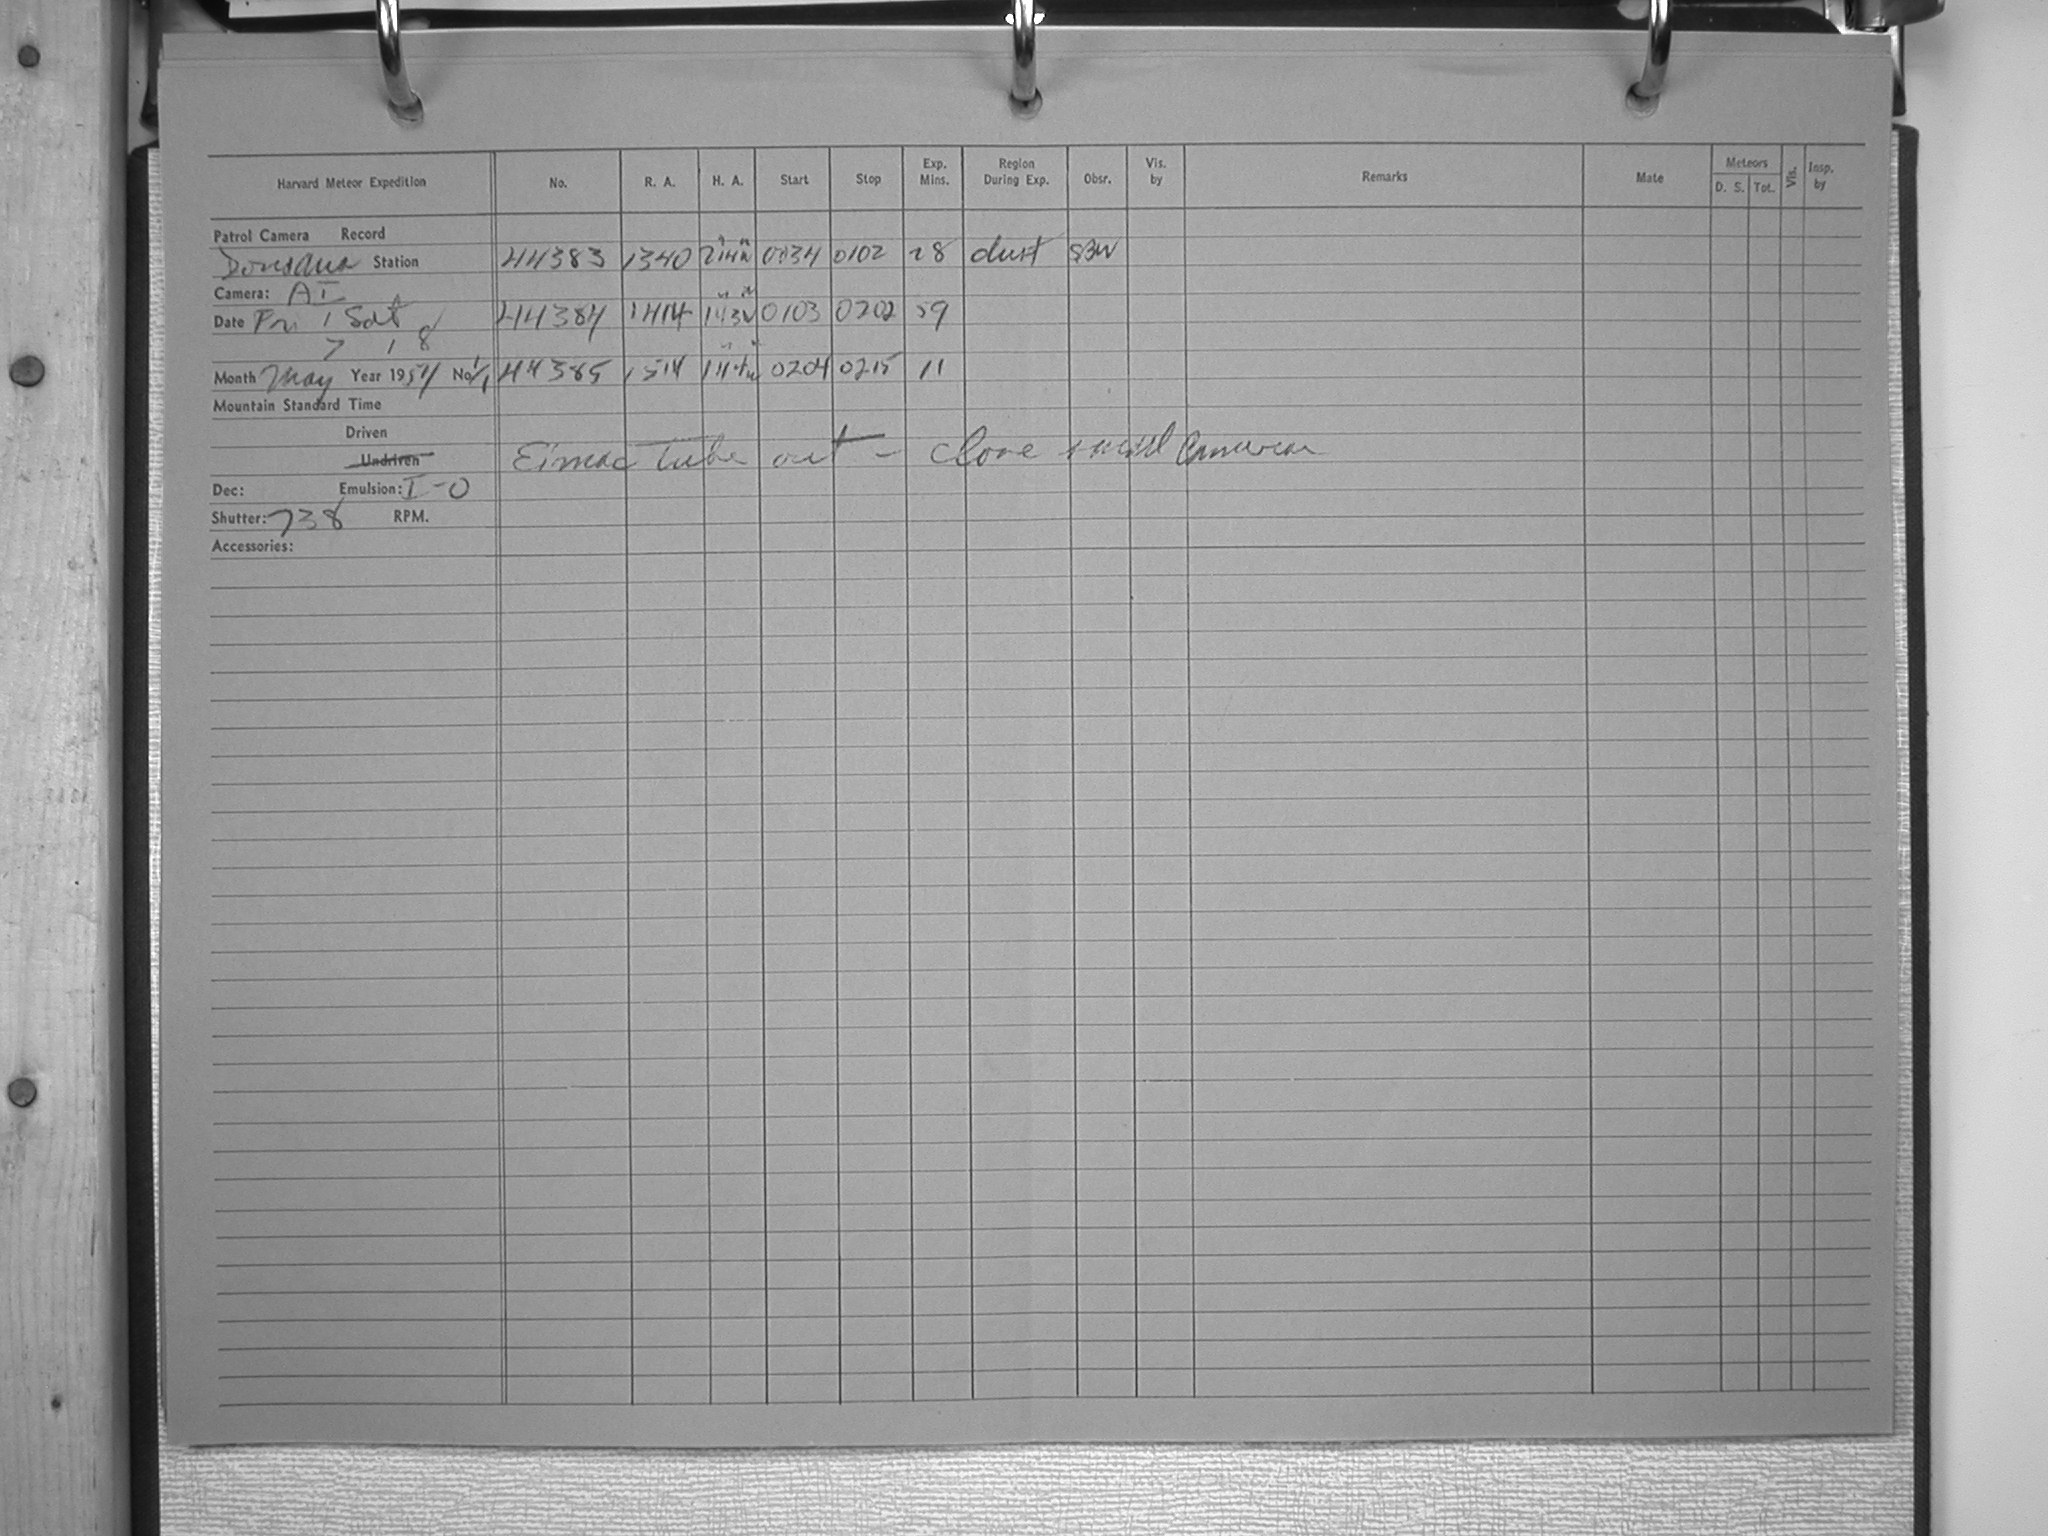 Harvard Meteor Expedition No. R. A. H. A. Start Stop Exp. Mins. Region During Exp. Obsr. Vis. by Remarks Mate Meteors D. S. Tot. Vis. Insp. by
Patrol Camera Record
Station 44383 1340 0034 0102 28 dust SBW
Camera: AI
Date Fri / Sat 44384 1414 0103 0202 59
7 / 8
Month May Year 1954 No 1/1 44385 1514 0204 0215 11
Mountain Standard Time
Driven
Undriven Eimac tube out - close Cameras
Dec: Emulsion: I-O
Shutter: 738 RPM.
Accessories: